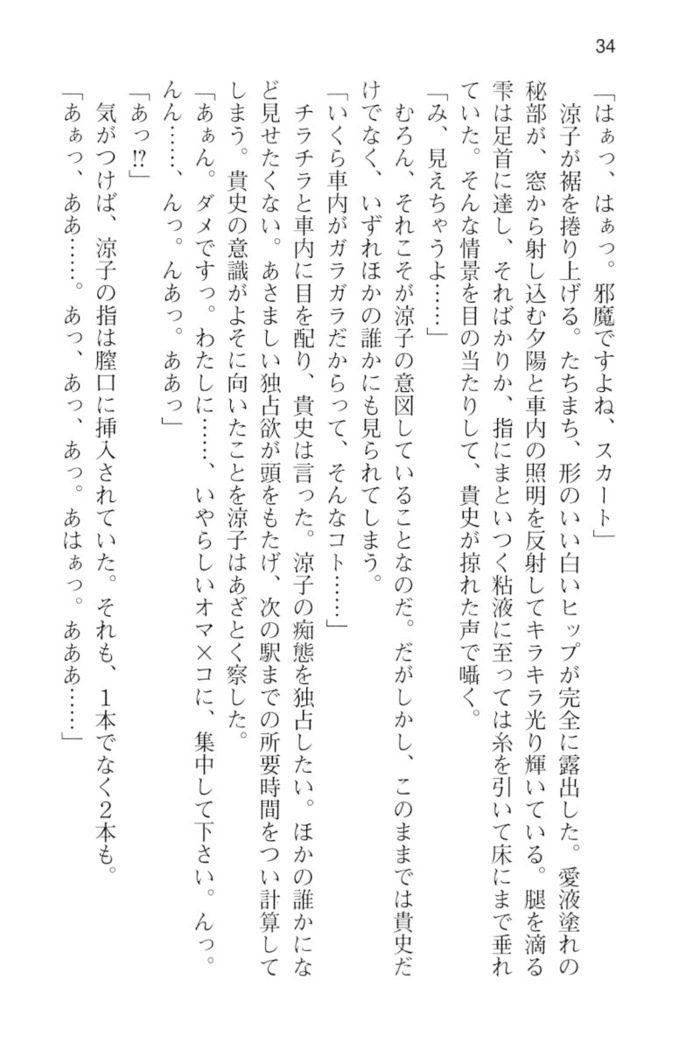 34
「はぁっ、はぁっ。邪魔ですよね、スカート」
　涼子が裾を捲り上げる。たちまち、形のいい白いヒップが完全に露出した。愛液塗れの
秘部が、窓から射し込む夕陽と車内の照明を反射してキラキラ光り輝いている。腿を滴る
雫は足首に達し、そればかりか、指にまといつく粘液に至っては糸を引いて床にまで垂れ
ていた。そんな情景を目の当たりして、貴史が掠れた声で囁く。
「み、見えちゃうよ……」
　むろん、それこそが涼子の意図していることなのだ。だがしかし、このままでは貴史だ
けでなく、いずれほかの誰かにも見られてしまう。
「いくら車内がガラガラだからって、そんなコト……」
　チラチラと車内に目を配り、貴史は言った。涼子の痴態を独占したい。ほかの誰かにな
ど見せたくない。あさましい独占欲が頭をもたげ、次の駅までの所要時間をつい計算して
しまう。貴史の意識がよそに向いたことを涼子はあざとく察した。
「あぁん。ダメですっ。わたしに……、いやらしいオマ×コに、集中して下さい。んっ。
んん……、んっ。んあっ。ああっ」
「あっ!?」
　気がつけば、涼子の指は膣口に挿入されていた。それも、１本でなく２本も。
「あぁっ、ああ……。あっ、あっ、あっ。あはぁっ。あああ……」